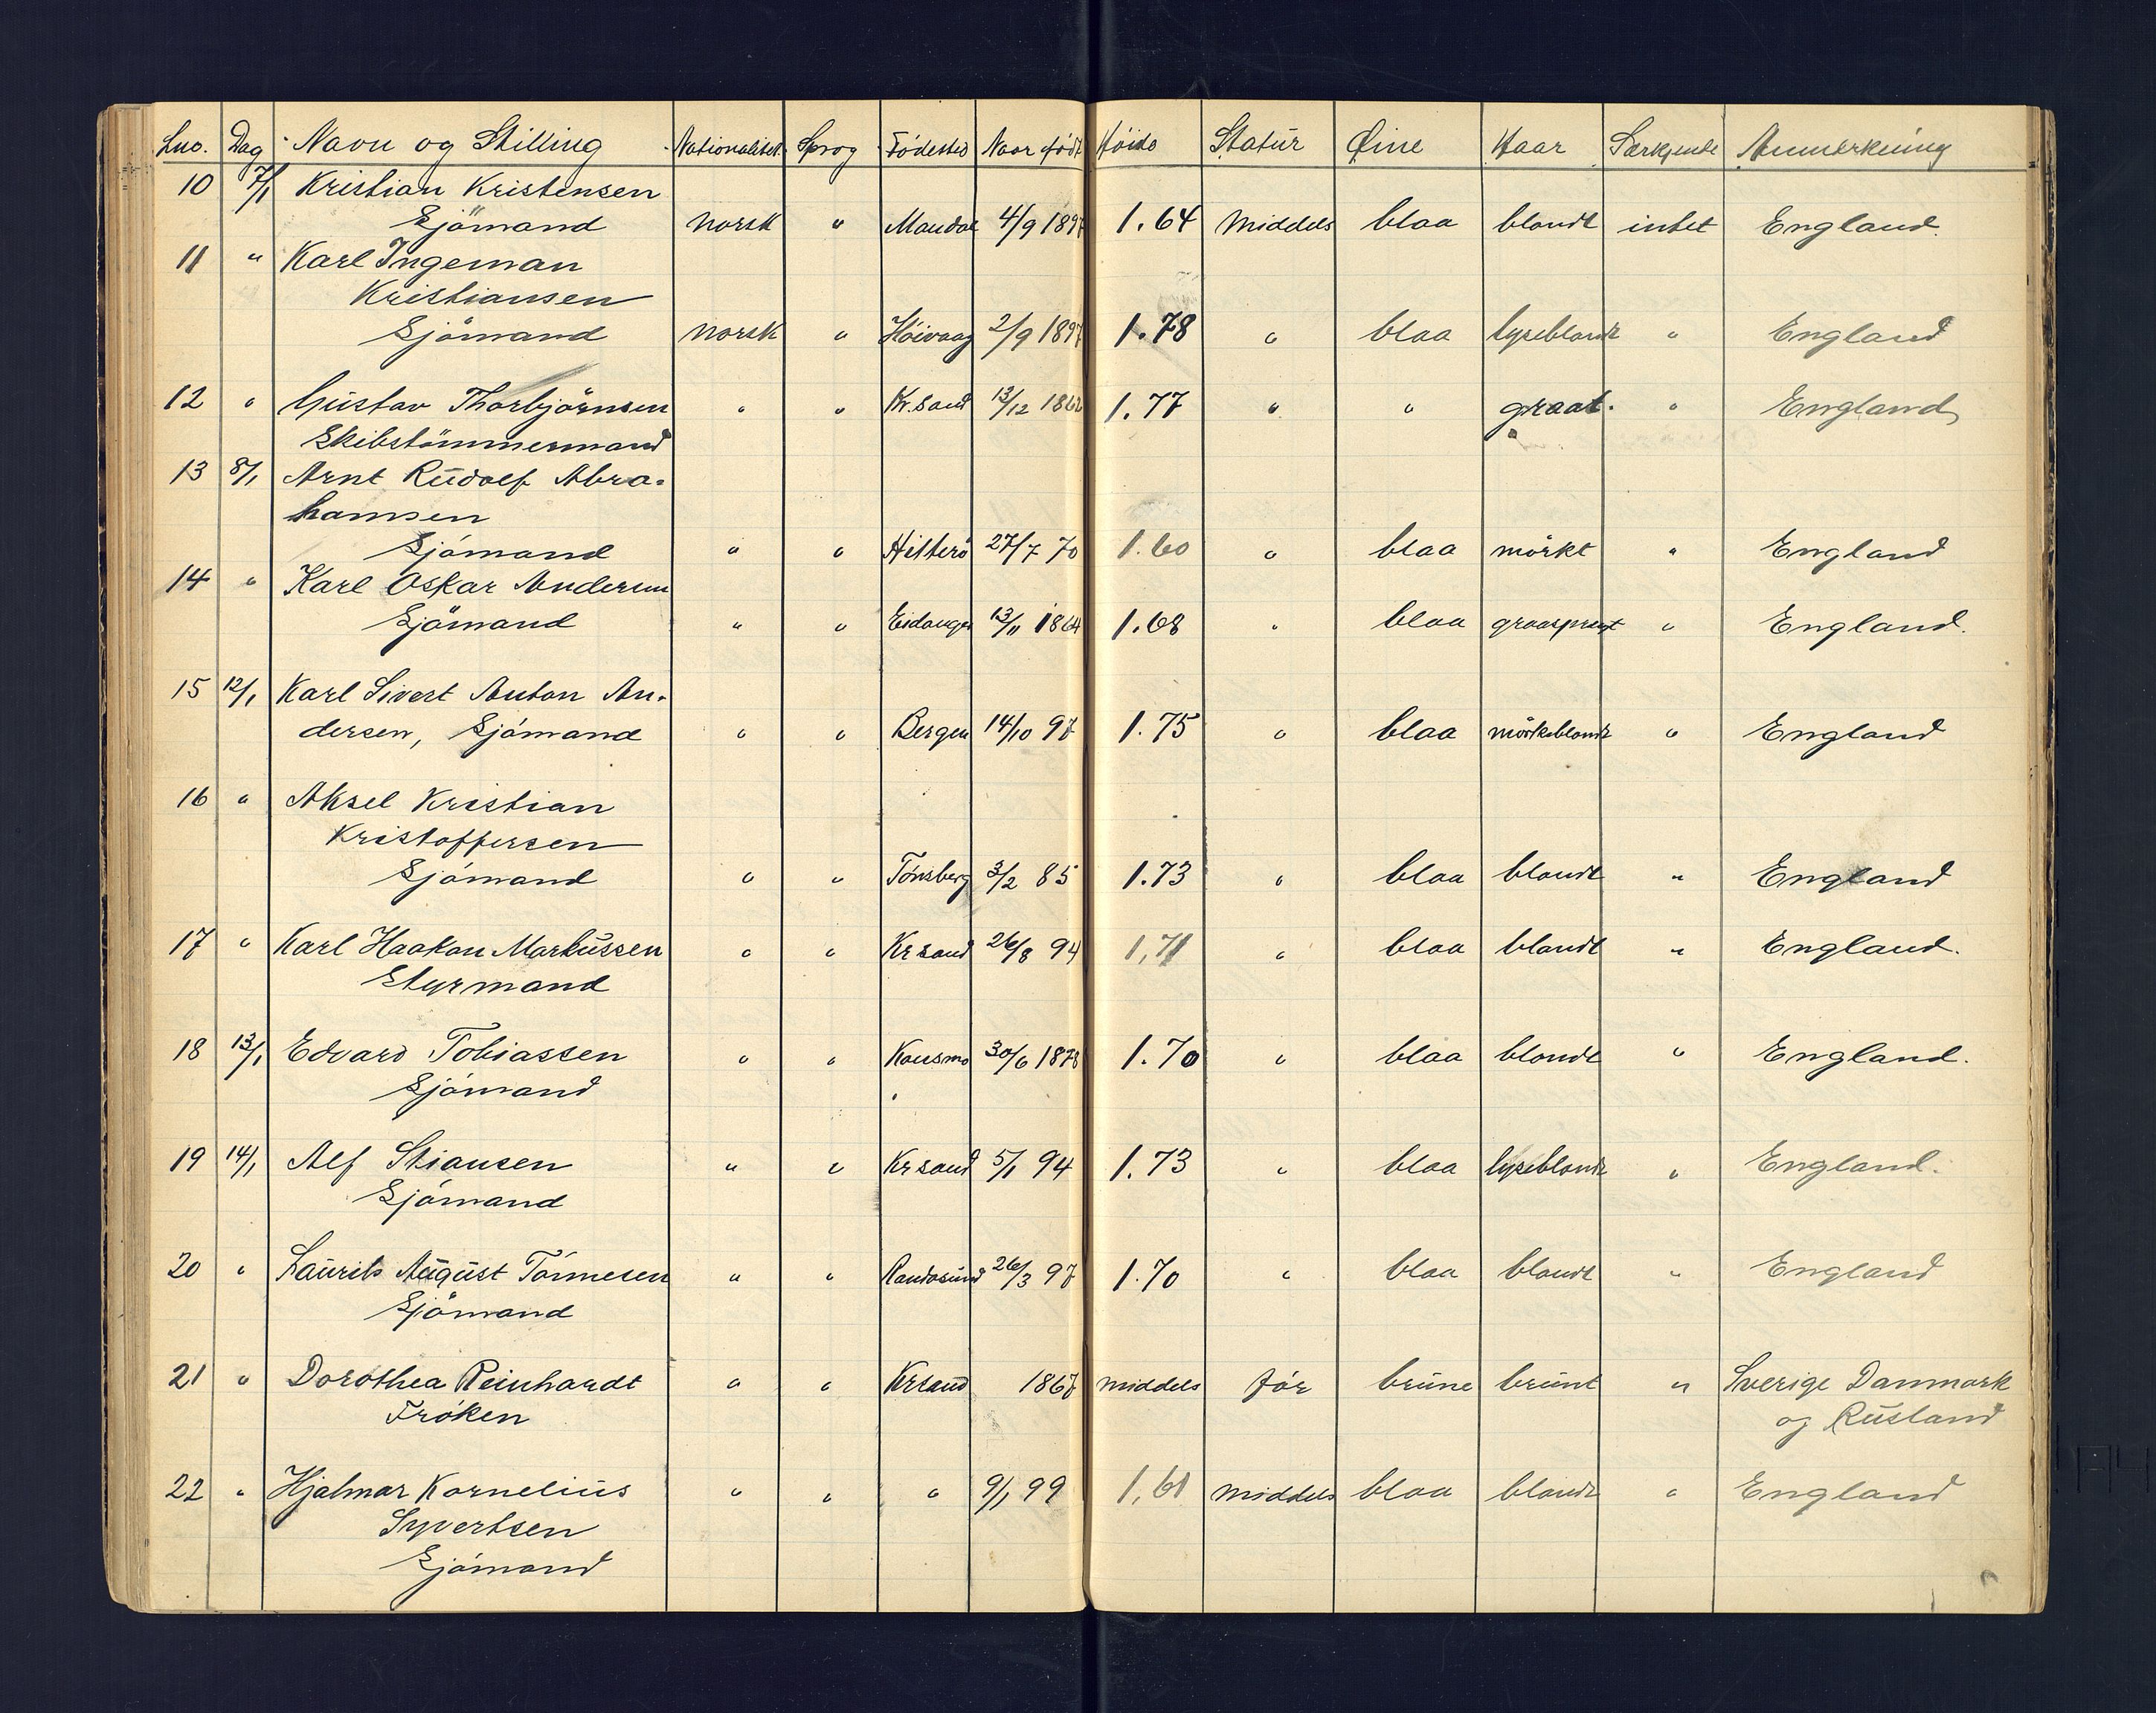 Lno. Dag Navn og Stilling Nationalitet Sprog Födested Naar födt Höide Statur Øine Haar Særkjende Anmerkning
10 7/1 Kristian Kristensen
Sjömand norsk " Mandal 4/9 1897 1.64 Middels blaa blondt intet England
11 " Karl Ingeman
Kristiansen
Sjömand norsk " Höivaag 2/9 1897 1.78 " blaa lyseblondt " England
12 " Gustav Thorbjörnsen " " Kr.sand 13/12 1862 1.77 " " graat. " England
Skibstömmermand
13 8/1 Arnt Rudolf Abra-
hamsen
Sjömand " " Hitterö 27/7 70 1.60 " blaa mörkt " England
14 " Karl Oskar Andersen
Sjömand " " Eidanger 13/11 1864 1.68 " blaa graasprengt " England.
15 12/1 Karl Sivert Anton An-
dersen, Sjömand " " Bergen 14/10 97 1.75 " blaa mörkeblondt " England
16 " Aksel Kristian
Kristoffersen
Sjömand " " Tönsberg 3/2 85 1.73 " blaa blondt " England
17 " Karl Haakon Markussen " " Krsand 26/8 94 1,71 " blaa blondt " England.
Styrmand
18 13/1 Edvard Tobiassen " " 30/6 1878 1.70 " blaa blondt " England.
Sjömand
19 14/1 Alf Stiansen " " Krsand 5/1 94 1.73 " blaa lyseblondt " England.
Sjömand
20 " Laurits August Tönnesen " " Randösund 26/3 97 1.70 " blaa blondt " England
Sjömand
21 " Dorothea Reinhardt " " Krsand 1867 middels för brune brunt " Sverige Danmark
Fröken og Rusland
22 " Hjalmar Kornelius " " " 9/1 99 1,61 middels blaa blondt " England
Syvertsen
Sjömand